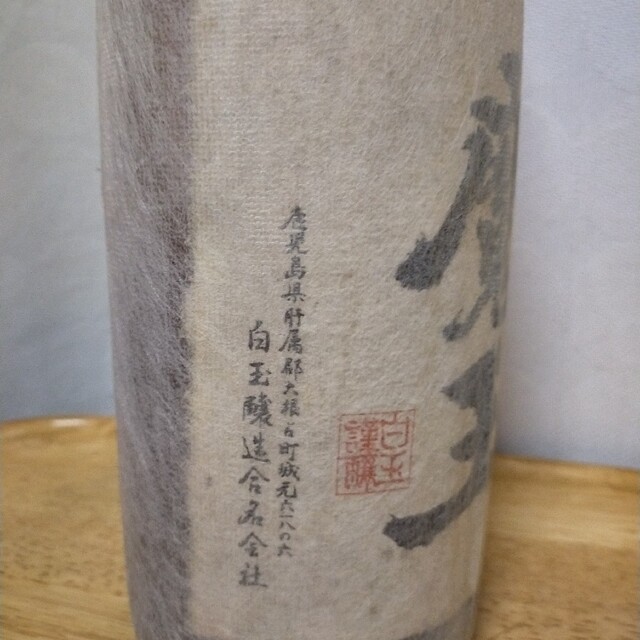 魔王
鹿児島県肝属郡大根占町城元六二八〇六
白玉醸造合名会社
白玉
謹醸